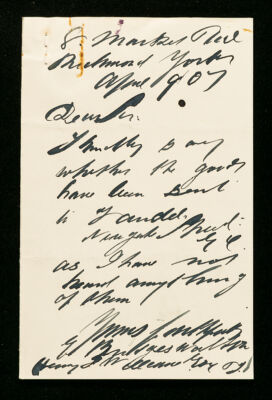 8 Market Place
Richmond Yorks
April 907
Dear Sir.
Kindly say
whether the goods
have been sent
to
Newgate Street
E C.
as I have not
heard anything
of them
Yours
G
Henry